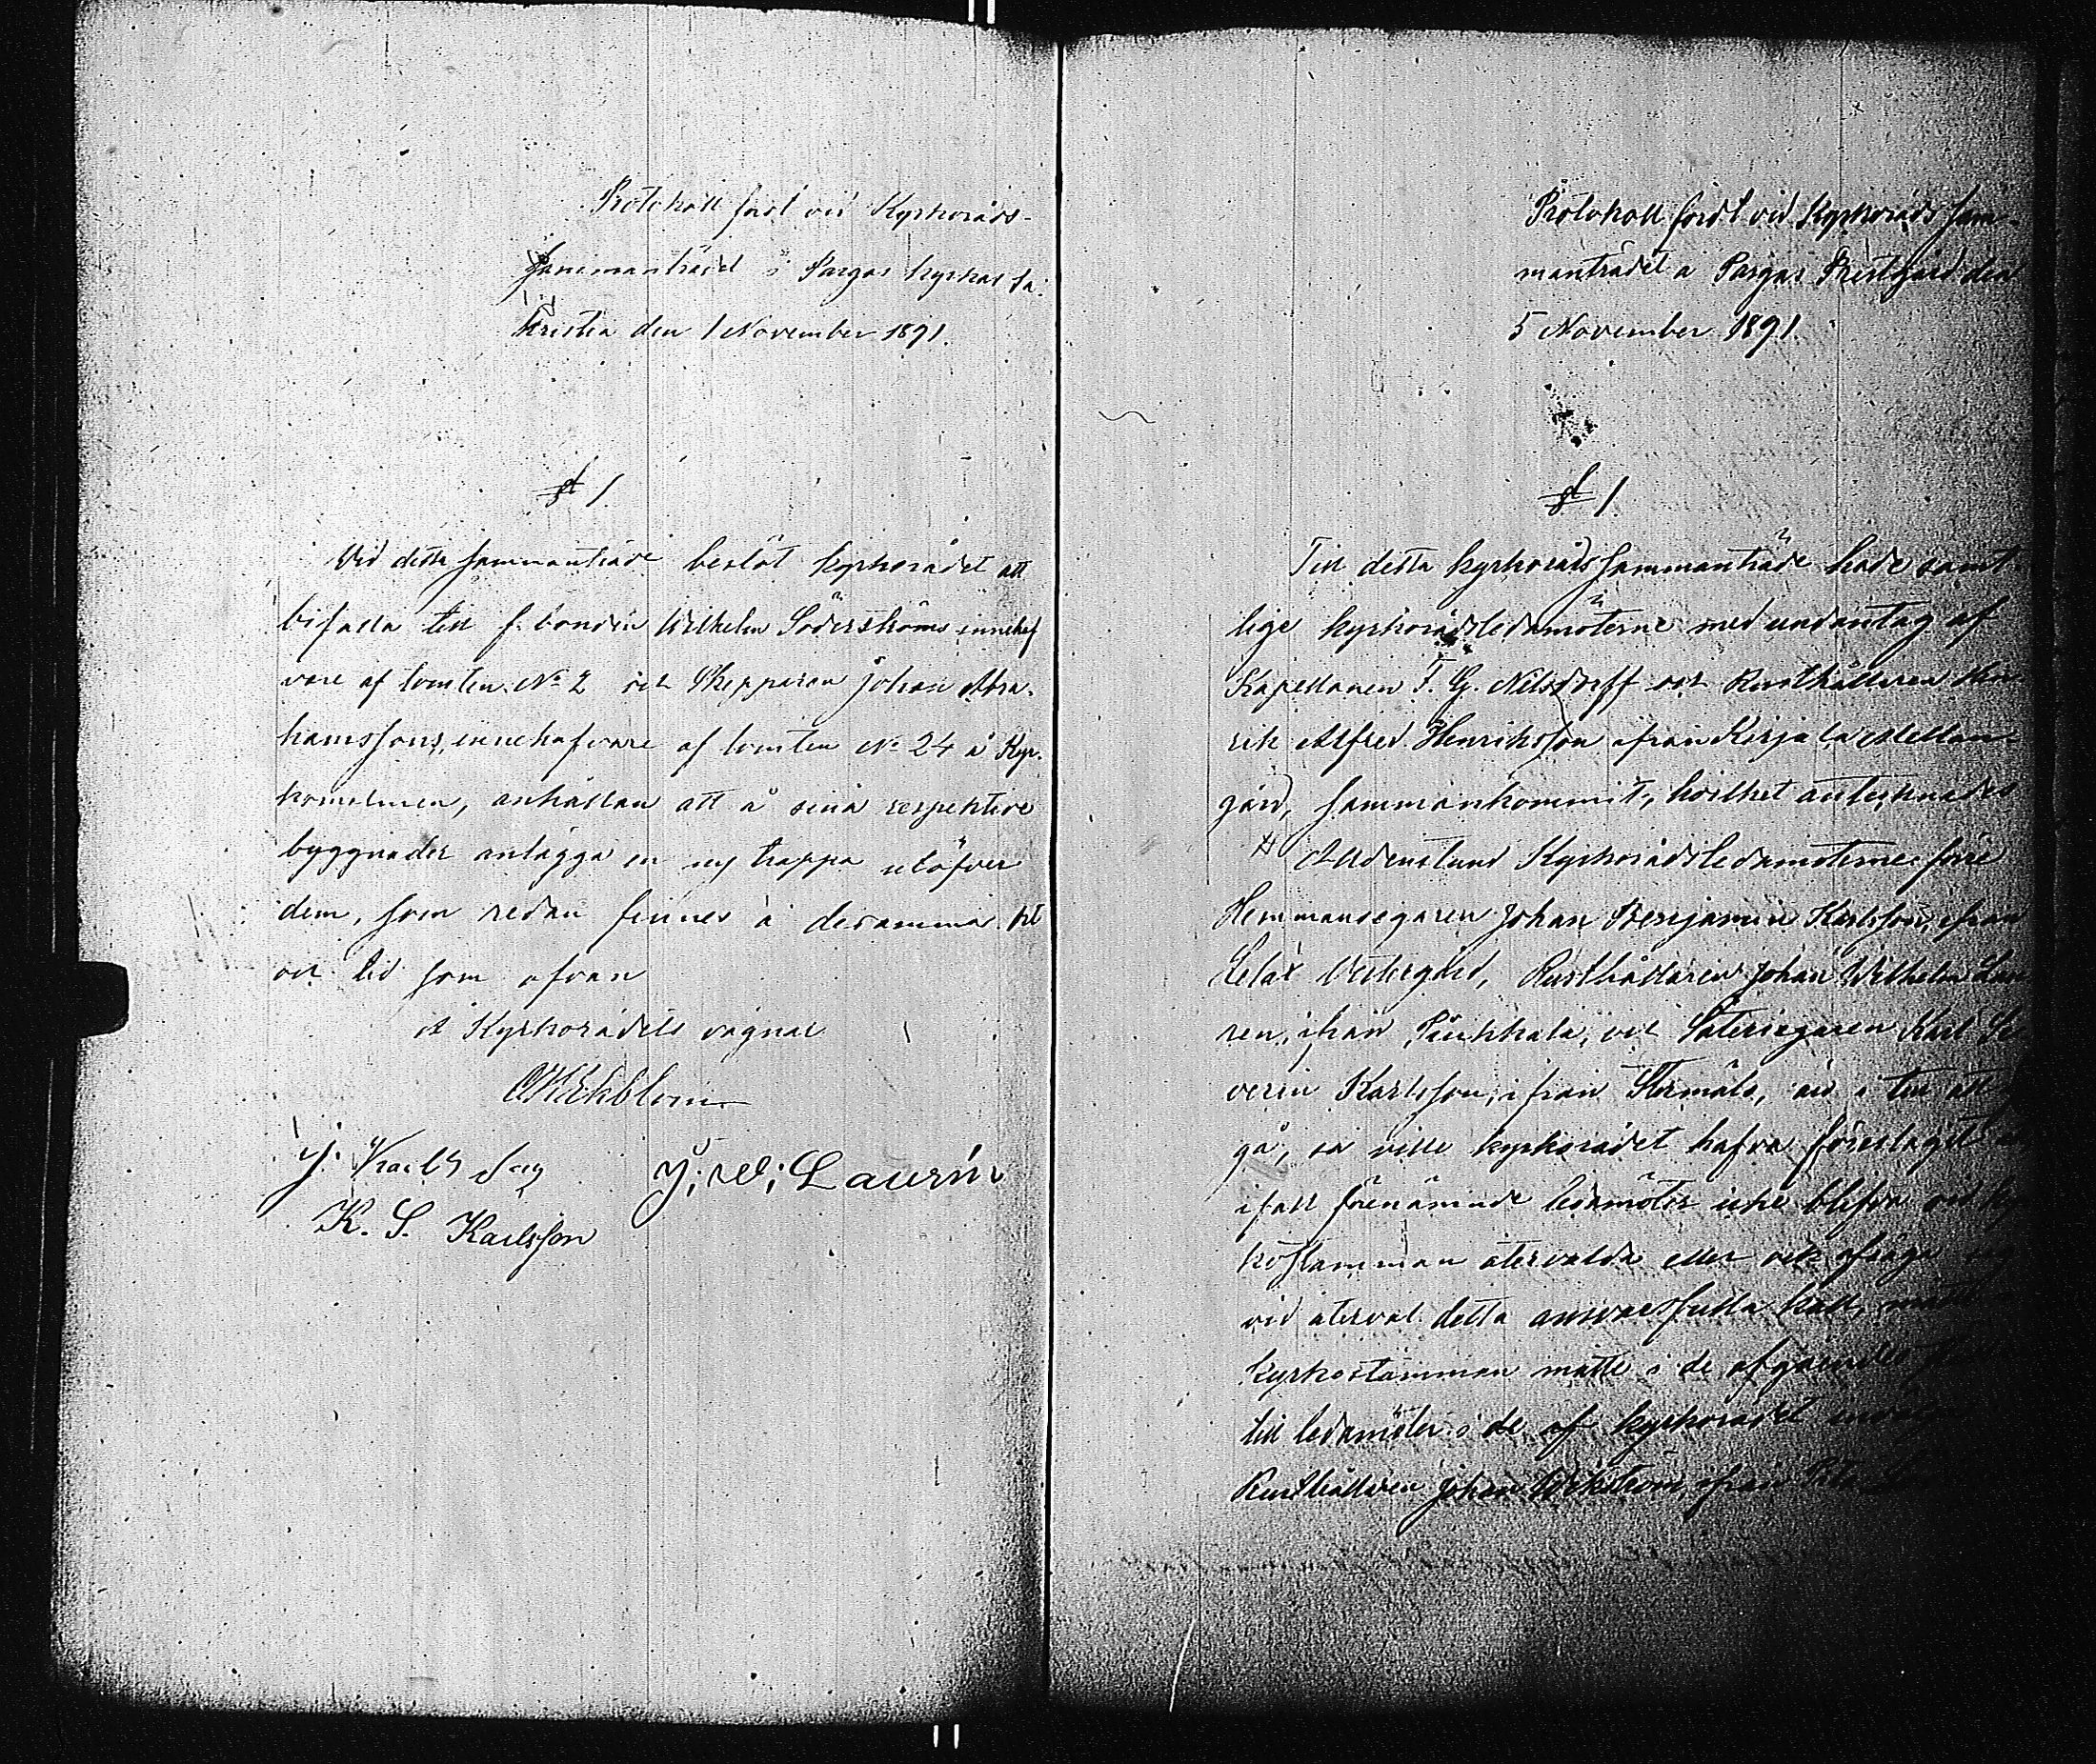 Protokoll fördt vid Kyrkoråds-
sammanträdet i Pargas kyrkas Sa-
kristia den 1 November 1891.
§ 1.
Vid detta sammanträde beslöt kyrkorådet att
bifalla till f. bonden Wilhelm Söderströms innehaf
vare af tomten No 2 och Skepparen Johan Abra-
hamssons, innehafvare af tomten No 24 å Kyr-
komalmen, anhållan att å sina respektive
byggnader anlägga en ny trappa utöfver
dem, som redan finnes å desamma.
och tid som ofvan
å Kyrkorådets vägnar
Ekblom
J. Karlsson J. W. Laurén
K. S. Karlsson
Protokoll fördt vid Kyrkoråds sam-
manträdet å Pargas Prestgård den
5 November 1891.
§ 1.
Till detta kyrkoråds sammanträde hade samt-
lige kyrkorådsledamöterne med undantag af
Kapellanen F. G. Nilsdorff och Rusthållaren Hen
rik Alfred Henriksson ifrån Kirjala Mellan-
gård, sammankommit, hvilket antecknades
Alldenstund Kyrkorådsledamöterne förre
Hemmansegaren Johan Benjamin Karlsson, ifrån
Lelax Westergård, Rusthållaren Johan Wilhelm Lau
ren, ifrån och Säteriegaren Karl Se
verin Karlsson, ifrån Stormälö, äro i tur att
gå, så ville kyrkorådet hafva föreslaget
ifall förenämnde ledamöter icke blifva vid ky
kostämman återvalda eller ock afsäga sig
vid återval detta ansvarsfulla kall,
kyrkostämman måtte i de afgåendes
till ledamöter i de af kyrkorådet
Rusthållaren Johan Wikström ifrån